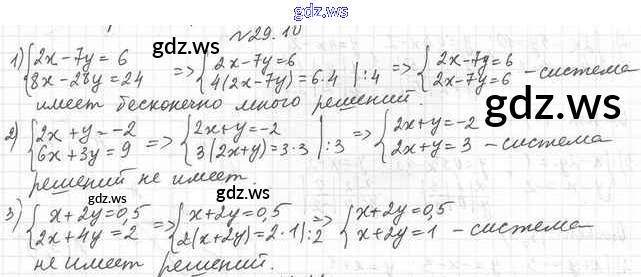 gdz.ws
№29.10
gdz.ws
1) {2x-7y=6 => {2x-7y=6 => {2x-7y=6
{8x-28y=24 {4(2x-7y)=6·4 |:4 {2x-7y=6 - система
имеет бесконечно много решений.
gdz.ws
2) {2x+y=-2 => {2x+y=-2 => {2x+y=-2
{6x+3y=9 {3(2x+y)=3·3 |:3 {2x+y=3 - система
решений не имеет.
gdz.ws
gdz.ws
3) {x+2y=0,5 => {x+2y=0,5 => {x+2y=0,5
{2x+4y=2 {2(x+2y)=2·1 |:2 {x+2y=1 - система
не имеет решений.